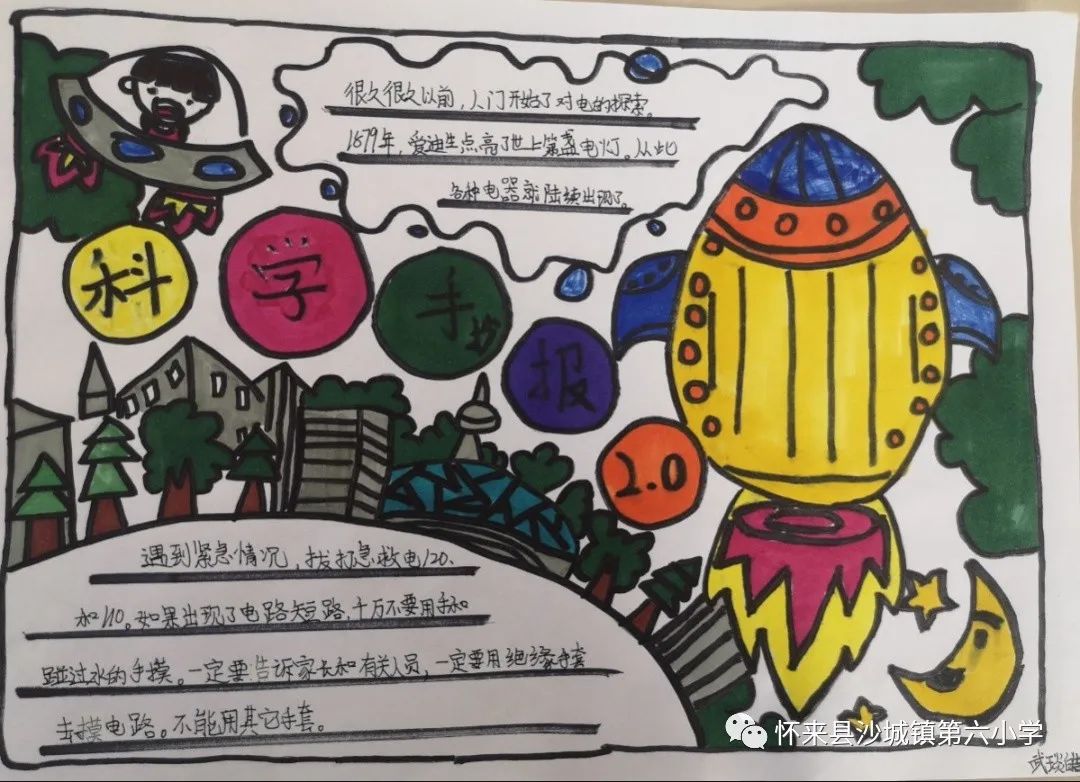 很久很久以前，人门开始了对电的探索。
1879年，爱迪生点亮了世上第盏电灯。从此
各种电器就陆续出现了。
科学手抄报
2.0
遇到紧急情况，拔打急救电120、
和110。如果出现了电路短路，千万不要用手和
碰过水的手摸。一定要告诉家长和有关人员，一定要用绝缘手套
去摸电路。不能用其它手套。
怀来县沙城镇第六小学
武